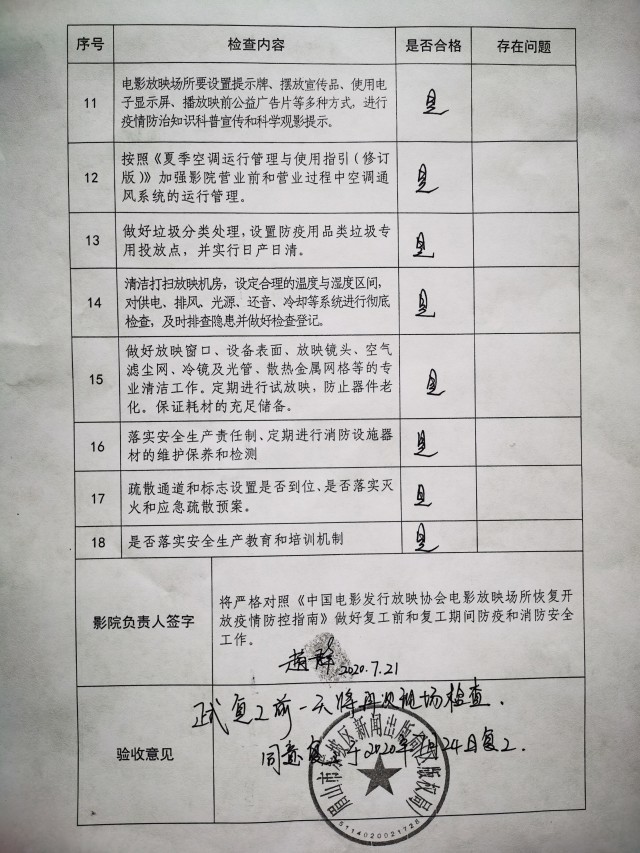 序号 检查内容 是否合格 存在问题
11 电影放映场所要设置提示牌、摆放宣传品、使用电
子显示屏、播放映前公益广告片等多种方式，进行 是
疫情防治知识科普宣传和科学观影提示。
12 按照《夏季空调运行管理与使用指引（修订
版）》加强影院营业前和营业过程中空调通 是
风系统的运行管理。
13 做好垃圾分类处理，设置防疫用品类垃圾专 是
用投放点，并实行日产日清。
14 清洁打扫放映机房，设定合理的温度与湿度区间，
对供电、排风、光源、还音、冷却等系统进行彻底 是
检查，及时排查隐患并做好检查登记。
15 做好放映窗口、设备表面、放映镜头、空气
滤尘网、冷镜及光管、散热金属网格等的专 是
业清洁工作。定期进行试放映，防止器件老
化。保证耗材的充足储备。
16 落实安全生产责任制、定期进行消防设施器 是
材的维护保养和检测
17 疏散通道和标志设置是否到位、是否落实灭 是
火和应急疏散预案。
18 是否落实安全生产教育和培训机制 是
影院负责人签字 将严格对照《中国电影发行放映协会电影放映场所恢复开
放疫情防控指南》做好复工前和复工期间防疫和消防安全
工作。
2020.7.21
验收意见 正式复工前一天将再次现场检查．
同意复工于2020年7月24日复工．
眉山市东坡区新闻出版局版权局
5114020021728